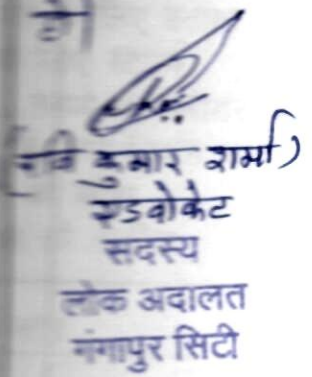 है।
(रवि कुमार शर्मा)
एडवोकेट
सदस्य
लोक अदालत
गंगापुर सिटी